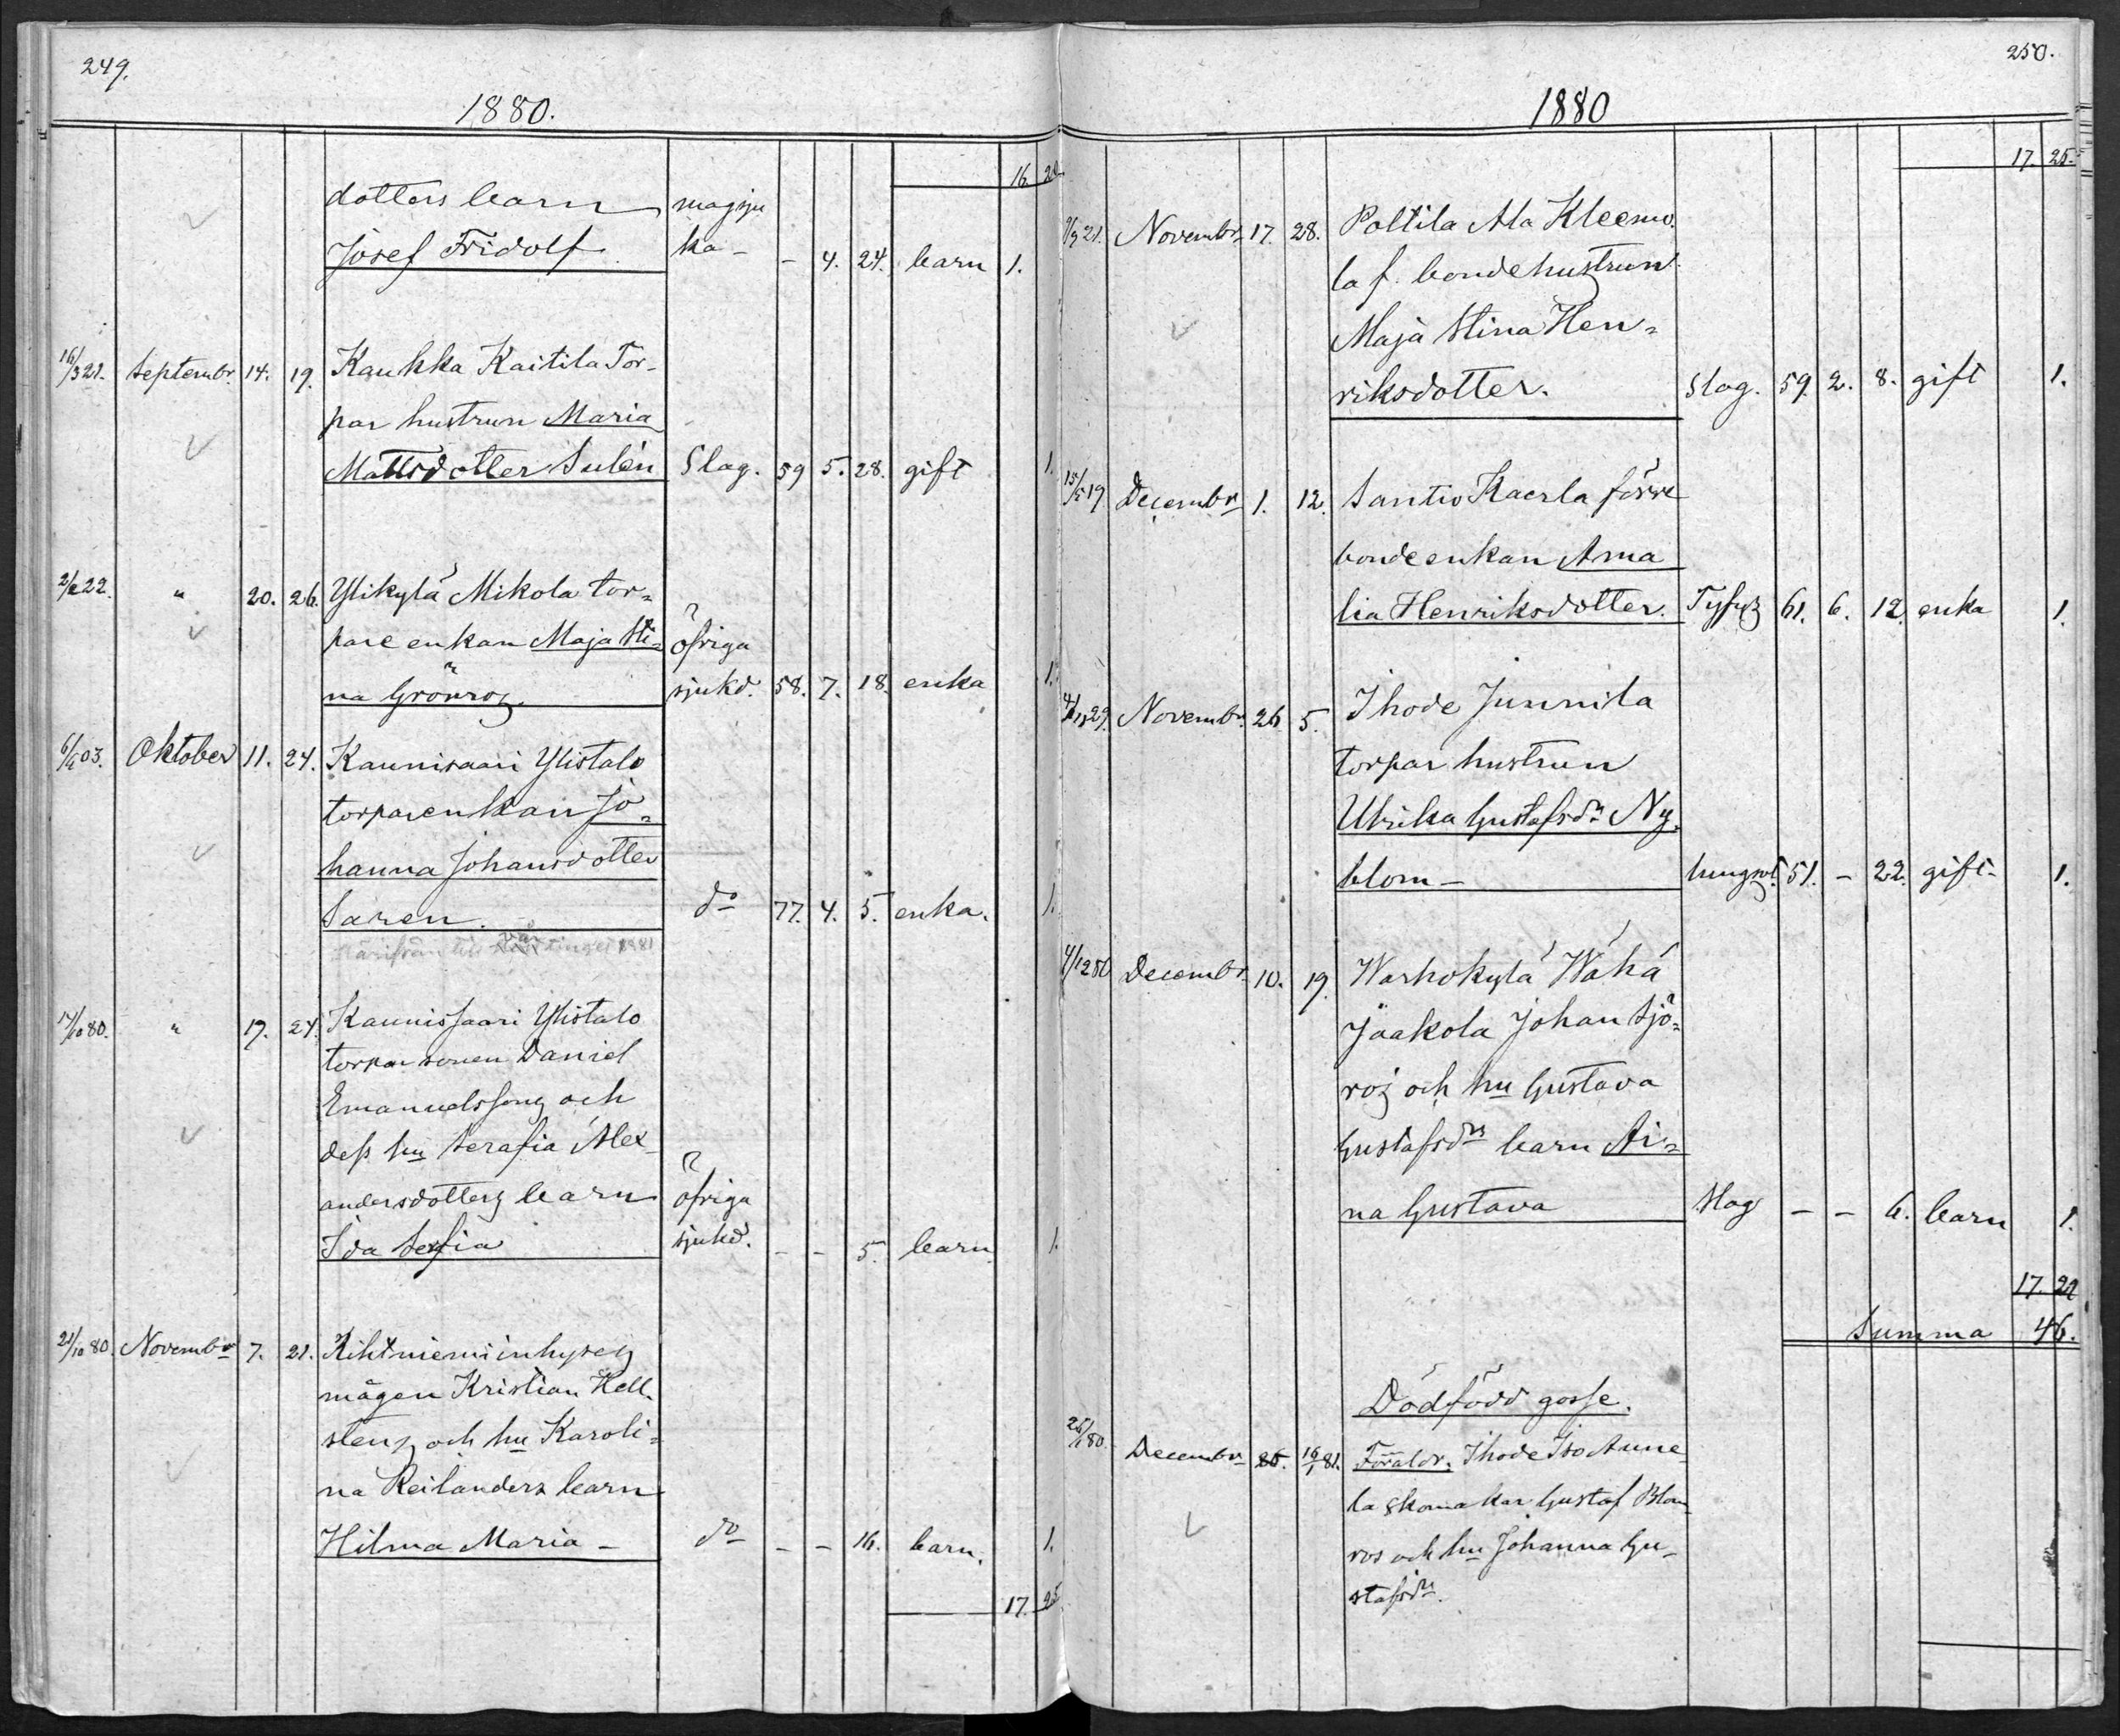 249.
1880.
16. 20
dotters barn magsju
Josef Fridolf. ka - - 4. 24. barn 1.
16/3 21. Septembr. 14. 19. Kaukka Kaitila Tor-
par hustrun Maria
Mattsdotter Sulén Slag. 59 5. 28. gift 1.
2/2 22. " 20. 26. Ylikylä Mikola tor-
pare enkan Maja Sti- öfriga
na Grönroz. sjukd. 58. 7. 18. enka 1.
6/6 03. Oktober 11. 24. Kaunisaari Ylistalo
torparenkan Jo-
hanna Johansdotter
Saren. do 77. 4. 5. enka. 1.
1881
14/10 80. " 19. 24. Kaunissaari Ylistalo
torpar sonen Daniel
Emanuelssons och
dess hu Serafia Alex-
andersdotters barn öfriga
Ida Sefia sjukd. - - 5. barn 1.
21/10 80. Novembr 7. 21. Rihtniemi inhyses
mågen Kristian Hell-
stens och hu Karoli-
na Reilanders barn
Hilma Maria - do - - 16. barn. 1.
17. 25
250.
1880
17. 25.
9/9 21. Novembr 17. 28. Poltila Ala Kleemo-
la f. bondehustrun
Maja Stina Hen-
riksdotter. Slag. 59. 2. 8. gift 1.
15/5 19 Decembr 1. 12. Santio Kaerla förre
bondeenkan Ama
lia Henriksdotter. Tyfus 61. 6. 12. enka 1.
29. Novembr. 26 5. Ihode Junnila
torpar hustrun
Ulrika Gustafsdr Ny-
blom - lungsot. 51. - 22. gift - 1.
4/12 80 Decembr 10. 19. Warhokylä Wähä
Jaakola Johan Sjö-
ros och hu Gustava
Gustafsdrs barn Ai-
na Gustava Slag - - 6. barn 1.
17. 29
Summa 46.
Dödfödd gosse.
25/ 80. Decembr 25. 16/1 81. Föräldr. Ihode Iso Anne
la skomakar Gustaf Blom
ros och hu Johanna Gu-
stafsdr.